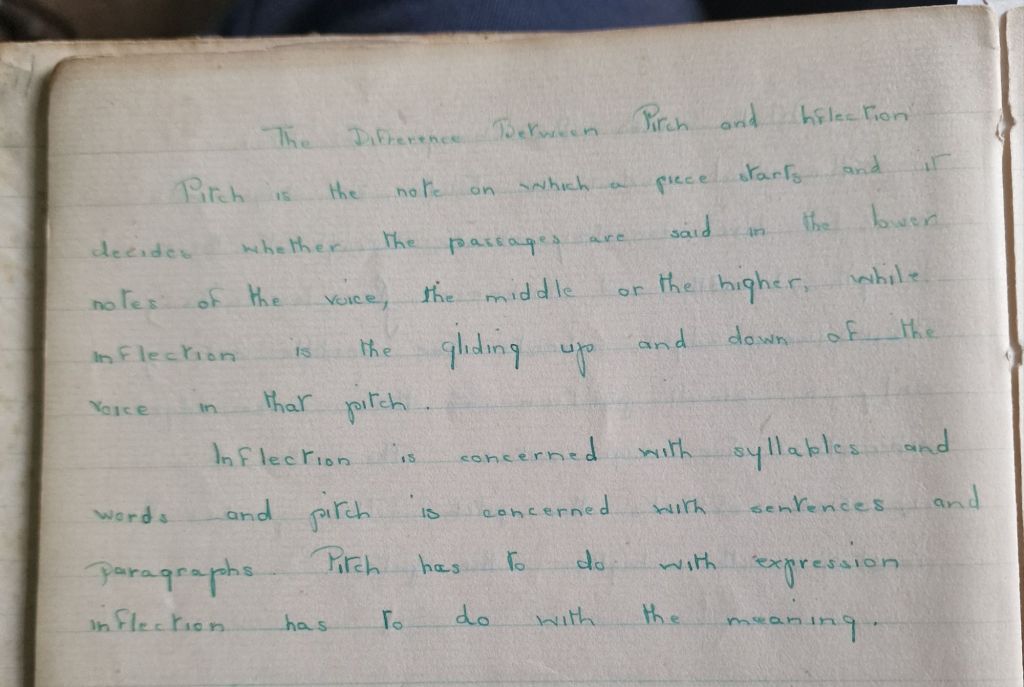 The Difference Between Pitch and Inflection
Pitch is the note on which a piece starts and it
decides whether the passages are said in the lower
notes of the voice, the middle or the higher, while
inflection is the gliding up and down of the
voice in that pitch.
Inflection is concerned with syllables and
words and pitch is concerned with sentences and
paragraphs. Pitch has to do with expression
inflection has to do with the meaning.